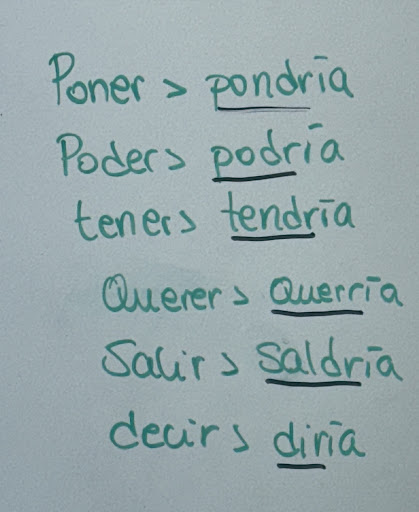 Poner > pondría
Poder > podría
tener > tendría
Querer > Querría
Salir > Saldría
decir > diría